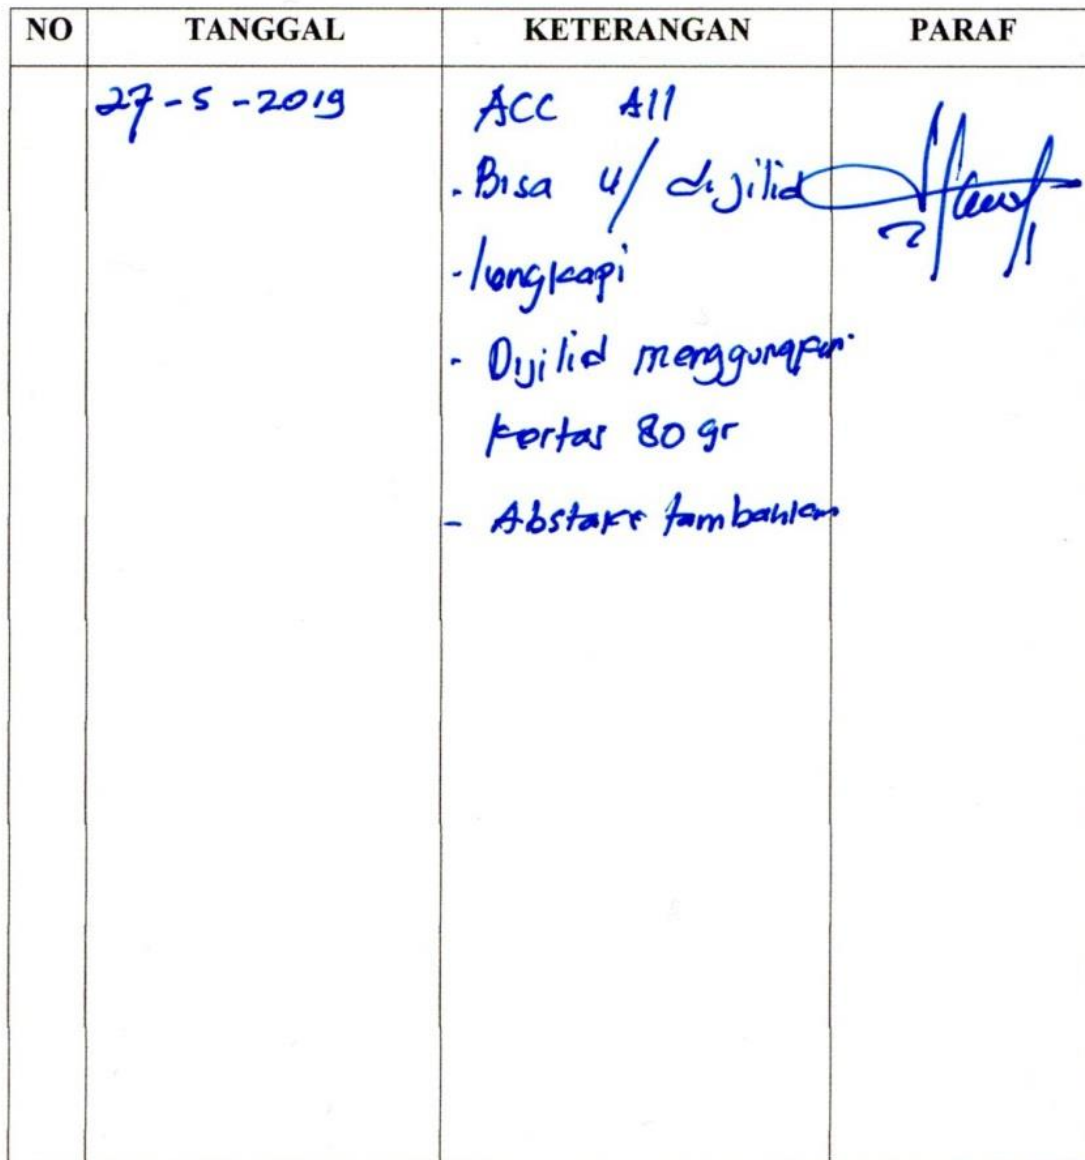 NO TANGGAL KETERANGAN PARAF
27-5-2019 ACC All
- Bisa u/ dijilid
- lengkapi
- Dijilid menggunakan
kertas 80 gr
- Abstake tambahkan